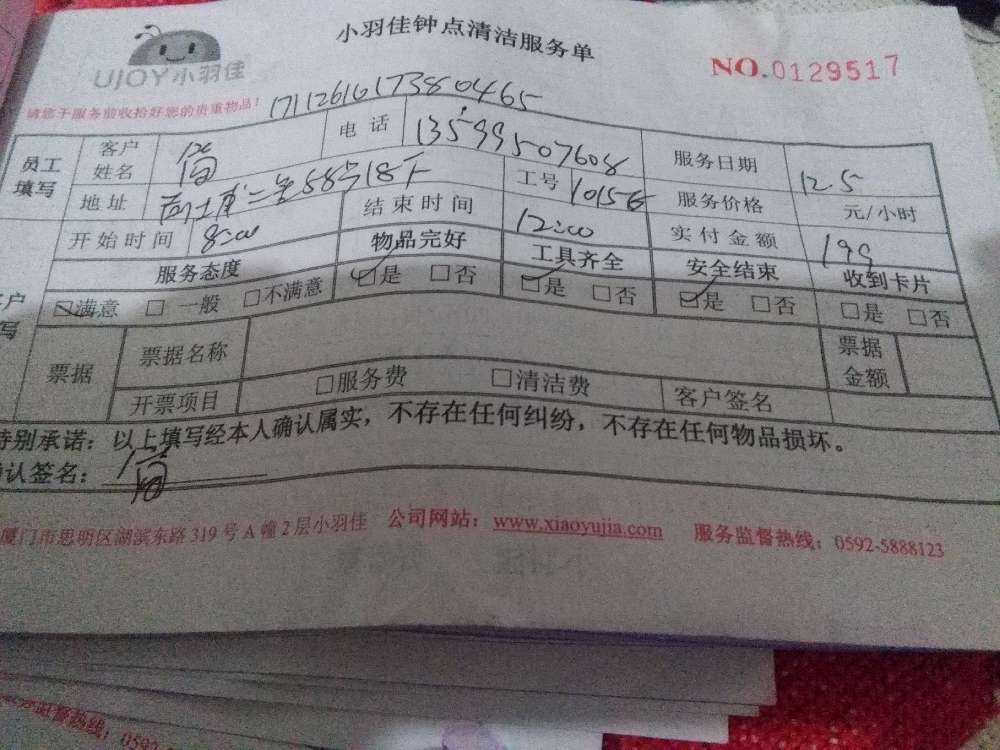 小羽佳钟点清洁服务单
UJOY小羽佳
NO.0129517
请您于服务前收拾好您的贵重物品!
171126161738 0465
员工填写 客户姓名 简 电话 13599507608 服务日期 12.5
地址 58号18F 工号 10156 服务价格 元/小时
开始时间 8:00 结束时间 12:00 实付金额 199
服务态度 物品完好 工具齐全 安全结束 收到卡片
☑满意 □一般 □不满意 ☑是 □否 ☑是 □否 ☑是 □否 □是 □否
票据 票据名称 票据金额
开票项目 □服务费 □清洁费 客户签名
特别承诺：以上填写经本人确认属实，不存在任何纠纷，不存在任何物品损坏。
认签名：简
厦门市思明区湖滨东路319号A幢2层小羽佳 公司网站：www.xiaoyujia.com 服务监督热线：0592-5888123
监督热线：0592-5